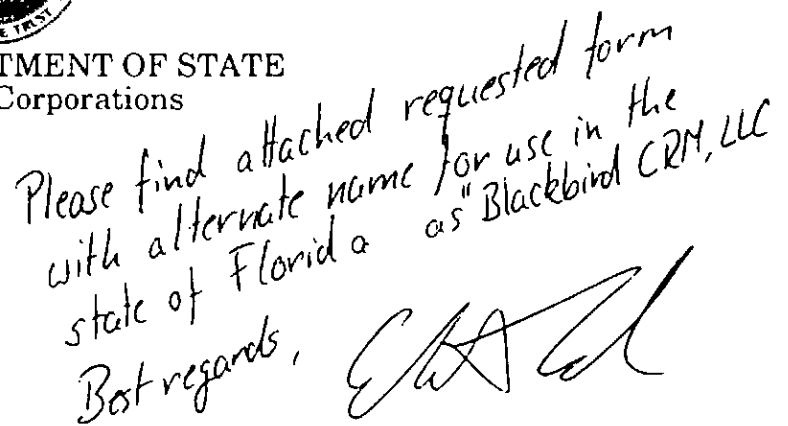 E TRUST
TMENT OF STATE
Corporations
Please find attached requested form
with alternate name for use in the
state of Florida as "Blackbird CRM, LLC
Best regards,